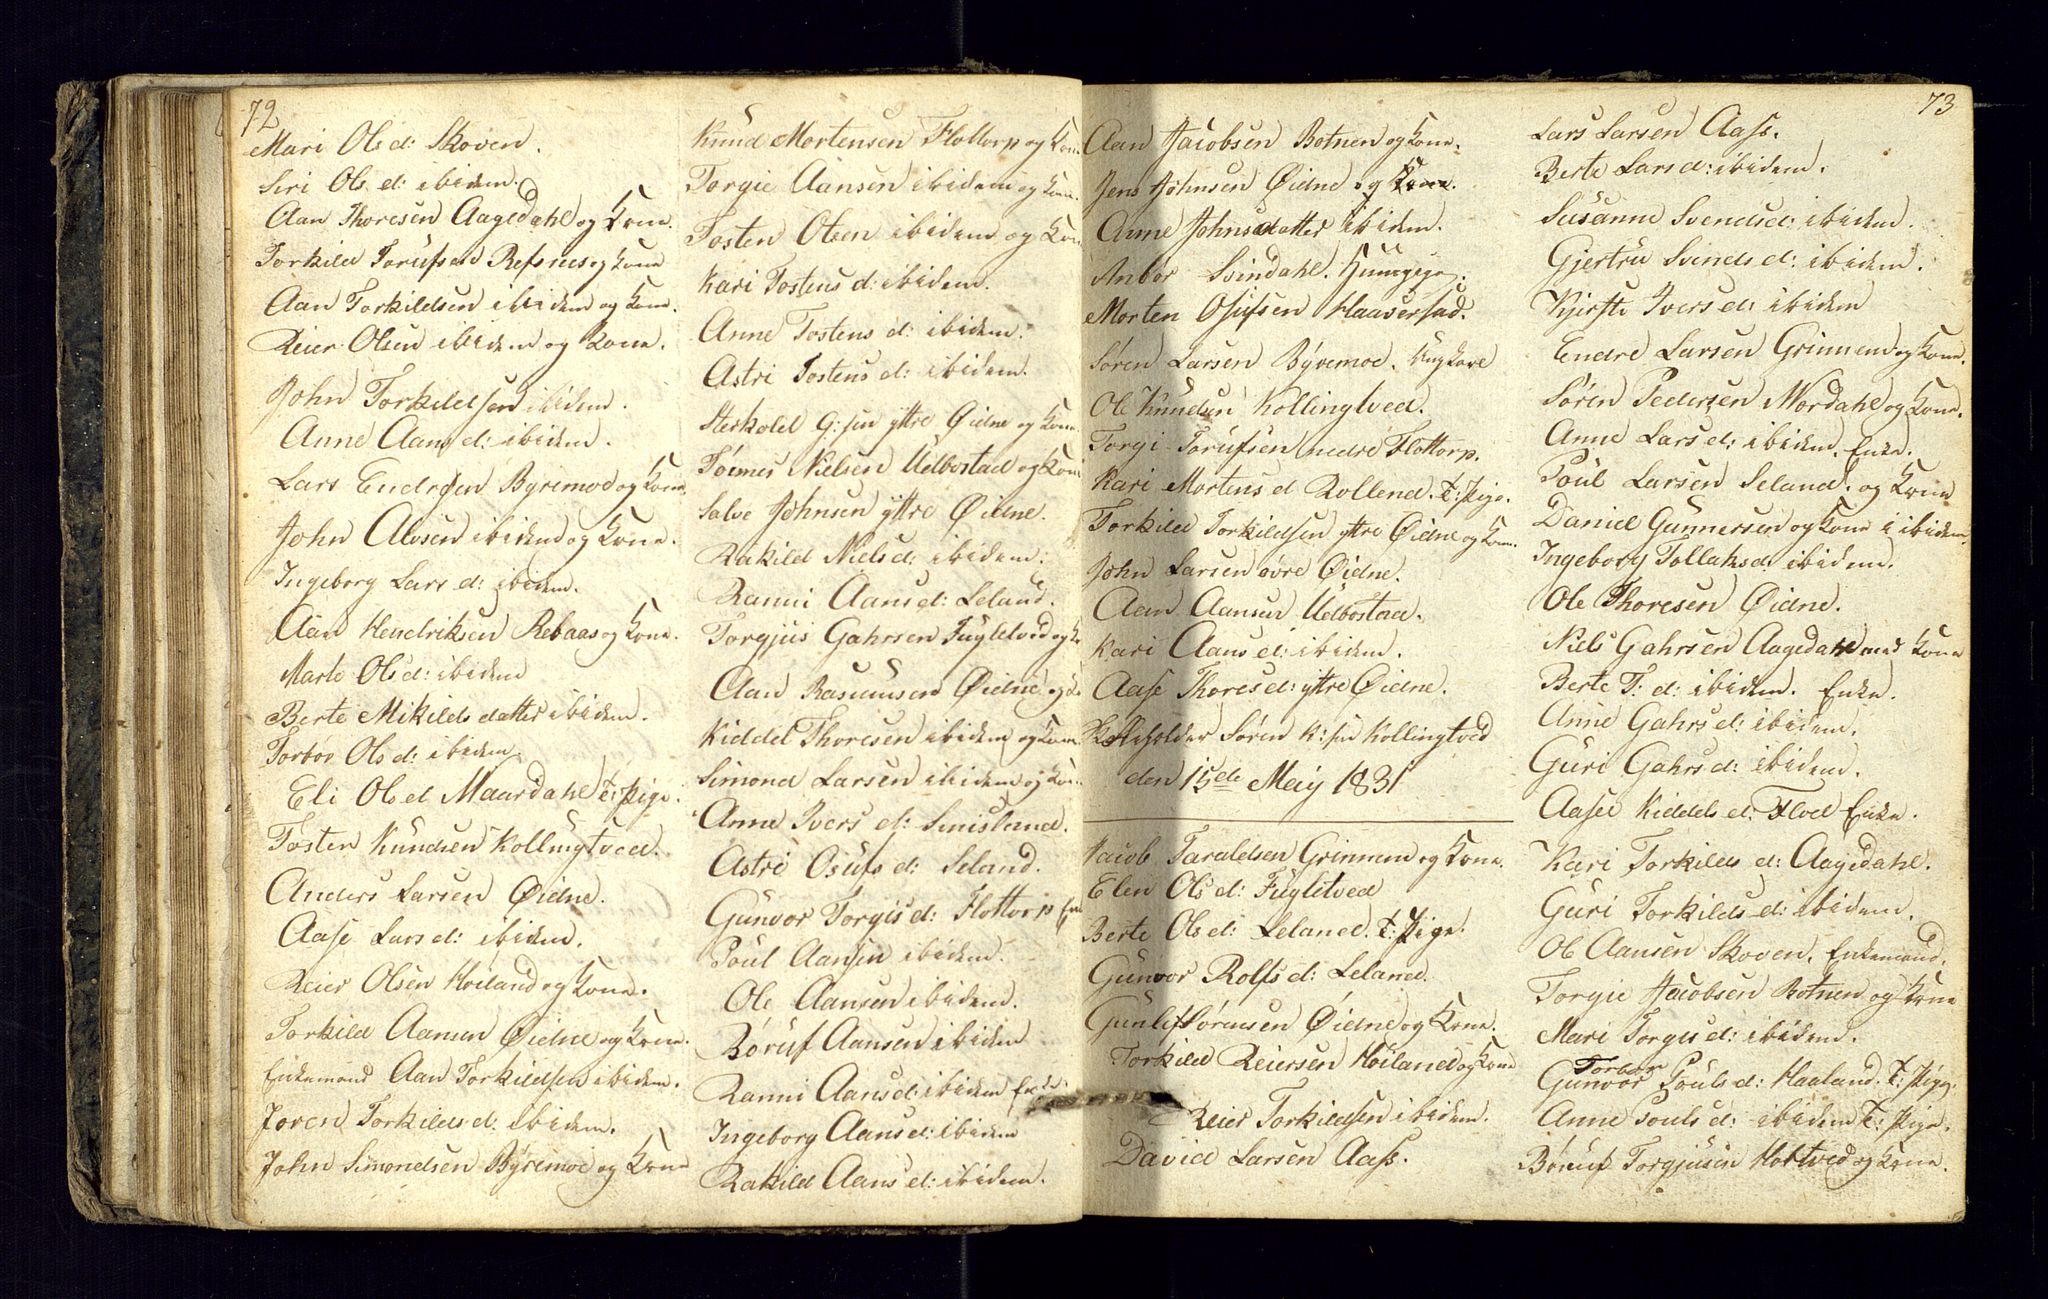 72
Mari Ols d: Skoven.
Siri Ols d: ibidem.
Aan Thoresen Aagedahl og Kone.
Torkild Torufsen Refsnes og Kone
Aan Torkildsen ibidem og Kone.
Reier Olsen ibidem og Kone.
John Torkildsen ibidem.
Anne Aans d: ibidem.
Lars Endresen Byremoe og Kone.
John Alvsen ibidem og Kone.
Ingeborg Lars d: ibidem.
Aan Hendriksen Rebaas og Kone.
Marte Ols d: ibidem
Berte Mikilds datter ibidem.
Torbor Ols d: ibidem.
Eli Ols d Maardahl T: Pige.
Tosten Knudsen Kollingtved.
Anders Larsen Øidne.
Aase Lars d: ibidem.
Reier Olsen Høiland og Kone.
Torkild Aansen Øidne og Kone.
Enkemand Aan Torkildsen ibidem.
Joren Torkilds d: ibidem.
John Simondsen Byremoe og Kone
Knud Mortensen Flottorp og Kone
Torgie Aansen ibidem og Kone.
Tosten Olsen ibidem og Kone
Kari Tostens d: ibidem.
Anne Tostens d: ibidem.
Astri Tostens d: ibidem.
Sterkold G:sen yttre Øidne og Kone.
Tönnes Nielsen Udbostad og Kone
Salve Johnsen yttre Øidne.
Rakild Niels d: ibidem.
Ranni Aans d: Leland.
Torgjus Gahrsen Fugletved og K
Aan Rasmusen Øidne og K
Kiddel Thoresen ibidem og Kone
Simond Larsen ibidem og Kone
Anne Ivers d: Sinisland.
Astri Osufs d: Seland.
Gunvor Torgis d: Flottorp Enk
Poul Aansen ibidem.
Ole Aansen ibidem.
Boruf Aansen ibidem
Ranni Aans d: ibidem Enke
Ingeborg Aans d: ibidem
Rakild Aans d: ibidem.
73
Aan Jacobsen Botnen og Kone.
Jens Johnsen Øidne og Kone.
Anne Johnsdatter ibidem.
Anbor Svindahl.
Morten Osufsen Haaverstad.
Søren Larsen Byremoe. Ungkarl
Ole Knudsen Kollingtved.
Torgi Torufsen nedre Flottorp.
Kari Mortens d Rollend. T: Pige.
Torkild Torkildsen yttre Øidne og Kone.
John Larsen øvre Øidne.
Aan Aansen Udbostad.
Kari Aans d: ibidem.
Aase Thores d: yttre Øidne.
Søren K:sen Kollingtved
den 15de Maij 1831
Jacob Taraldsen Grinnem og Kone.
Elen Ols d: Fugletved
Berte Ols d: Leland. T: Pige.
Gunvor Rolfs d: Leland.
Gunlef Sørensen Øidne og Kone.
Torkild Reiersen Høiland og Kone
Reier Torkildsen ibidem.
David Larsen Aass.
Lars Larsen Aass.
Berte Lars d: ibidem.
Susanne Svends d: ibidem.
Gjertru Svends d: ibidem.
Kjirste Ivers d: ibidem
Endre Larsen Grinnem og Kone.
Søren Pedersen Mordahl og Kone.
Anne Lars d: ibidem. Enke.
Poul Larsen Seland. og Kone
Daniel Gunnersen og Kone i ibidem.
Ingeborg Tollaks d: ibidem.
Ole Thoresen Øidne.
Niels Gahrsen Aagedahl med Kone
Berte T: d: ibidem. Enke.
Anne Gahrs d: ibidem.
Guri Gahrs d: ibidem.
Aasel Kiddels d: Flod Enke.
Kari Torkilds d: Aagedahl.
Guri Torkilds d: ibidem.
Ole Aansen Skoven. Enkemand.
Torgie Jacobsen Botnen og Kone
Mari Torgis d: ibidem.
Torbor
Gunvor Pouls d: Haaland. T: Pige.
Anne Pouls d: ibidem T: Pige.
Boruf Torgjusen Holtved og Kone.